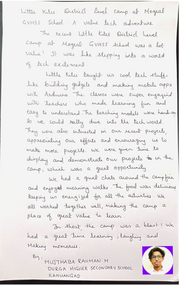 Little Kites District Level
Camp at Mogral
GVHSS School A Value tech adventure
The recent Little Kites District Level
Camp at Mogral GVHSS School was a lot
value! It was like stepping into a world
of tech excitement
Little Kites taught us cool tech stuff,
like building gadgets and making mobile apps
with Arduino. The classes were super engaging
with teachers who made learning fun and
easy to understand. The teaching models were hands-on
so we could really dive into the tech world.
They were also interested in our recent projects,
appreciating our efforts and encouraging us to
make more projects. We were given time to
display and demonstrate our projects in the
camp, which was a great opportunity
We had a great chats around the campfire
and enjoyed morning walks. The food was delicious
keeping us energized for all the activities we
all worked together well, making the camp a
place of great value to learn.
In short the camp was a blast! We
had a great time learning, laughing and
making memories
By,
MUJTHABA RAIHMAN M
DURGA HIGHER SECONDARY SCHOOL
KANHANGAD